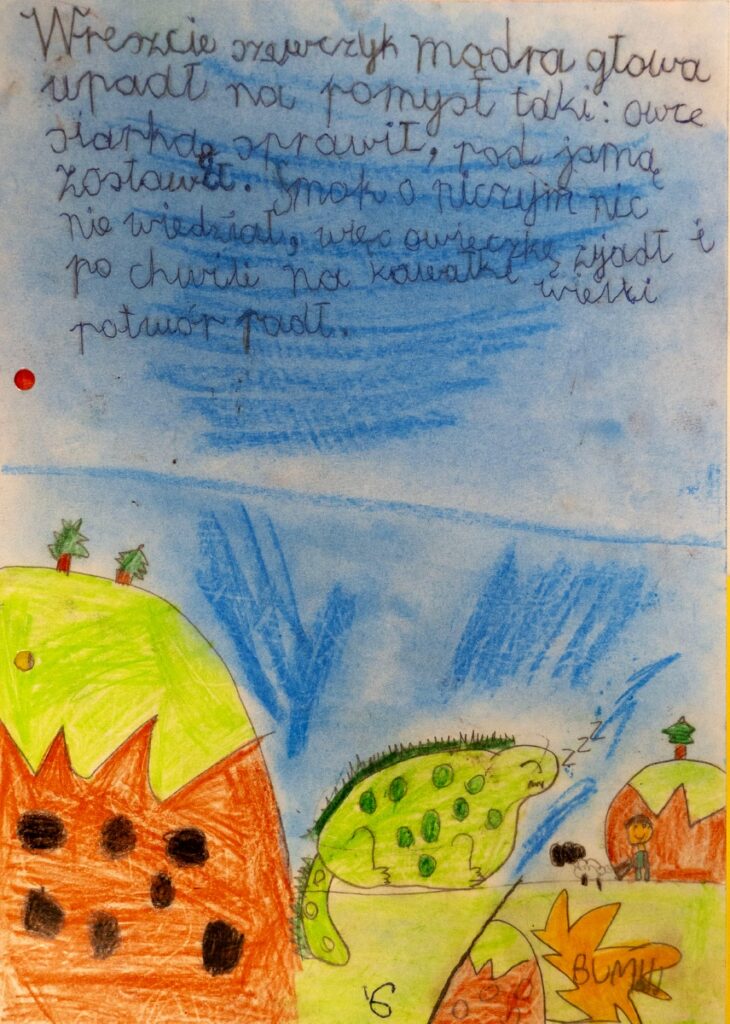 Wreszcie szewczyk mądra głowa
upadł na pomysł taki: owce
siarką sprawił, pod jamą
zostawił. Smok o niczym nic
nie wiedział, więc owieczkę zjadł i
po chwili na kawałki wielki
potwór padł.
zzz
BUM!!!
6